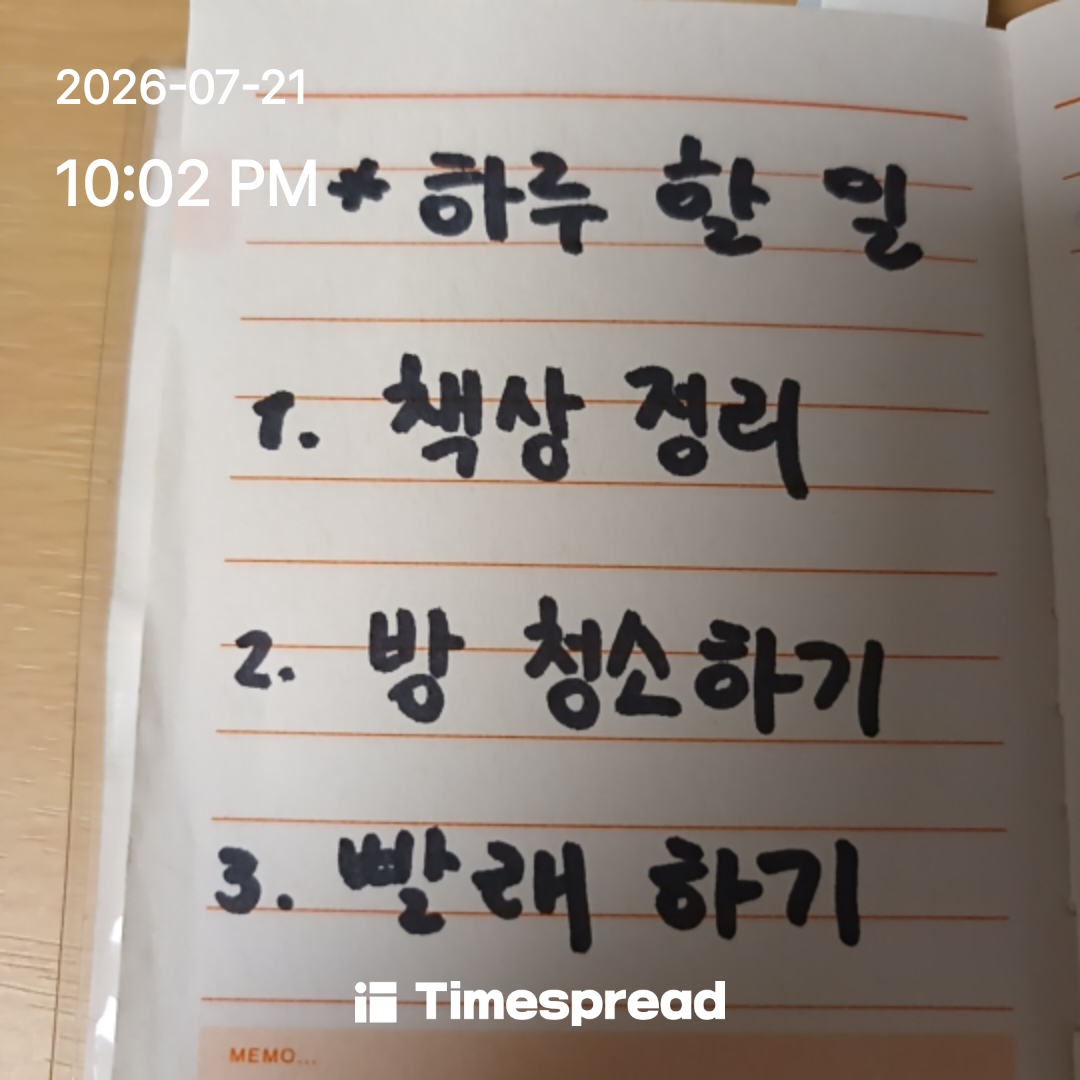 2026-07-21
10:02 PM
* 하루 할 일
1. 책상 정리
2. 방 청소하기
3. 빨래 하기
Timespread
MEMO...